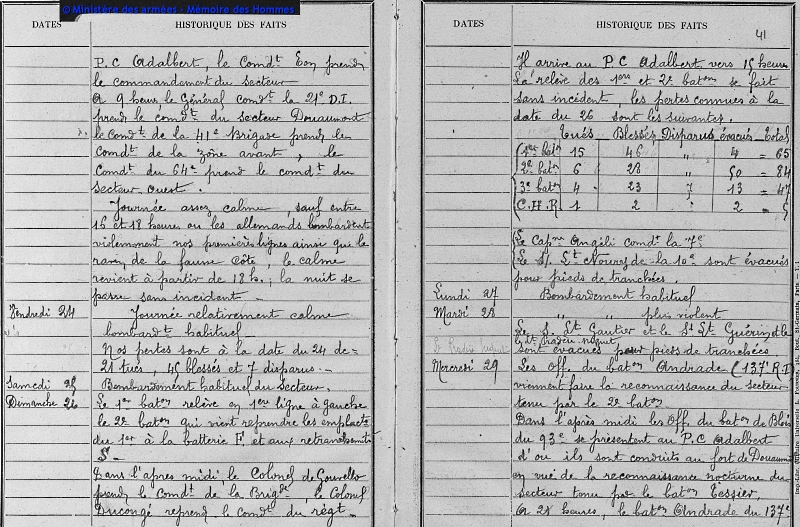 © Ministère des armées - Mémoire des Hommes
DATES
HISTORIQUE DES FAITS
P.C Adalbert, le Comdt Eon prend
le commandement du secteur
A 9 heures le Général comdt la 21e D.I.
prend le comdt du secteur Douaumont
le Comdt de la 41e Brigade prend le
Comdt de la zône avant, le
Comdt du 64e prend le comdt du
secteur ouest.
Journée assez calme, sauf entre
16 et 18 heures ou les allemands bombardent
violemment nos premières lignes ainsi que le
ravin de la fausse côte, le calme
revient à partir de 18 h.; la nuit se
passe sans incident -
Vendredi 24
Journée relativement calme
bombardt habituel
Nos pertes sont à la date du 24 de =
21 tués, 45 blessés et 7 disparus. -
Samedi 25
Bombardement habituel du Secteur.
Dimanche 26
Le 1er baton relève en 1ère ligne à gauche
le 2e baton qui vient reprendre les emplacts
du 1er à la batterie F. et aux retranchements
S -
Dans l'apres midi le Colonel de Gouvello
prend le Comdt de la Brigde, le Colonel
Ducongé reprend le Comdt du régt -
DATES
HISTORIQUE DES FAITS
41
Il arrive au P.C Adalbert vers 15 heures
La relève des 1ers et 2e baton se fait
sans incident, les pertes connues à la
date du 26 sont les suivantes.
Tués Blessés Disparus évacués Total
(1er baton 15 46 " 4 = 65
(2e baton 6 28 " 50 = 84
(3e baton 4 23 7 13 = 47
(C.H.R 1 2 " 2 = 5
(Le Capne Angéli comdt la 7e
(Le S/ Lt de la 10e sont évacués
pour pieds de tranchées.
Lundi 27
Bombardement habituel
Mardi 28
" " plus violent
Le S. Lt Gautier et le St Lt Guérin et le
sont évacués pour pieds de tranchées.
Mercredi 29
Les Off. du baton Andrade (137e R.I)
viennent faire la reconnaissance du secteur
tenu par le 2e baton
Dans l'après midi les Off. du baton de Blois
du 93e se présentent au P.C Adalbert
d'ou ils sont conduits au fort de Douaumont
en vue de la reconnaissance nocturne du
secteur tenu par le baton Tessier.
A 21 heures, le baton Andrade du 137e